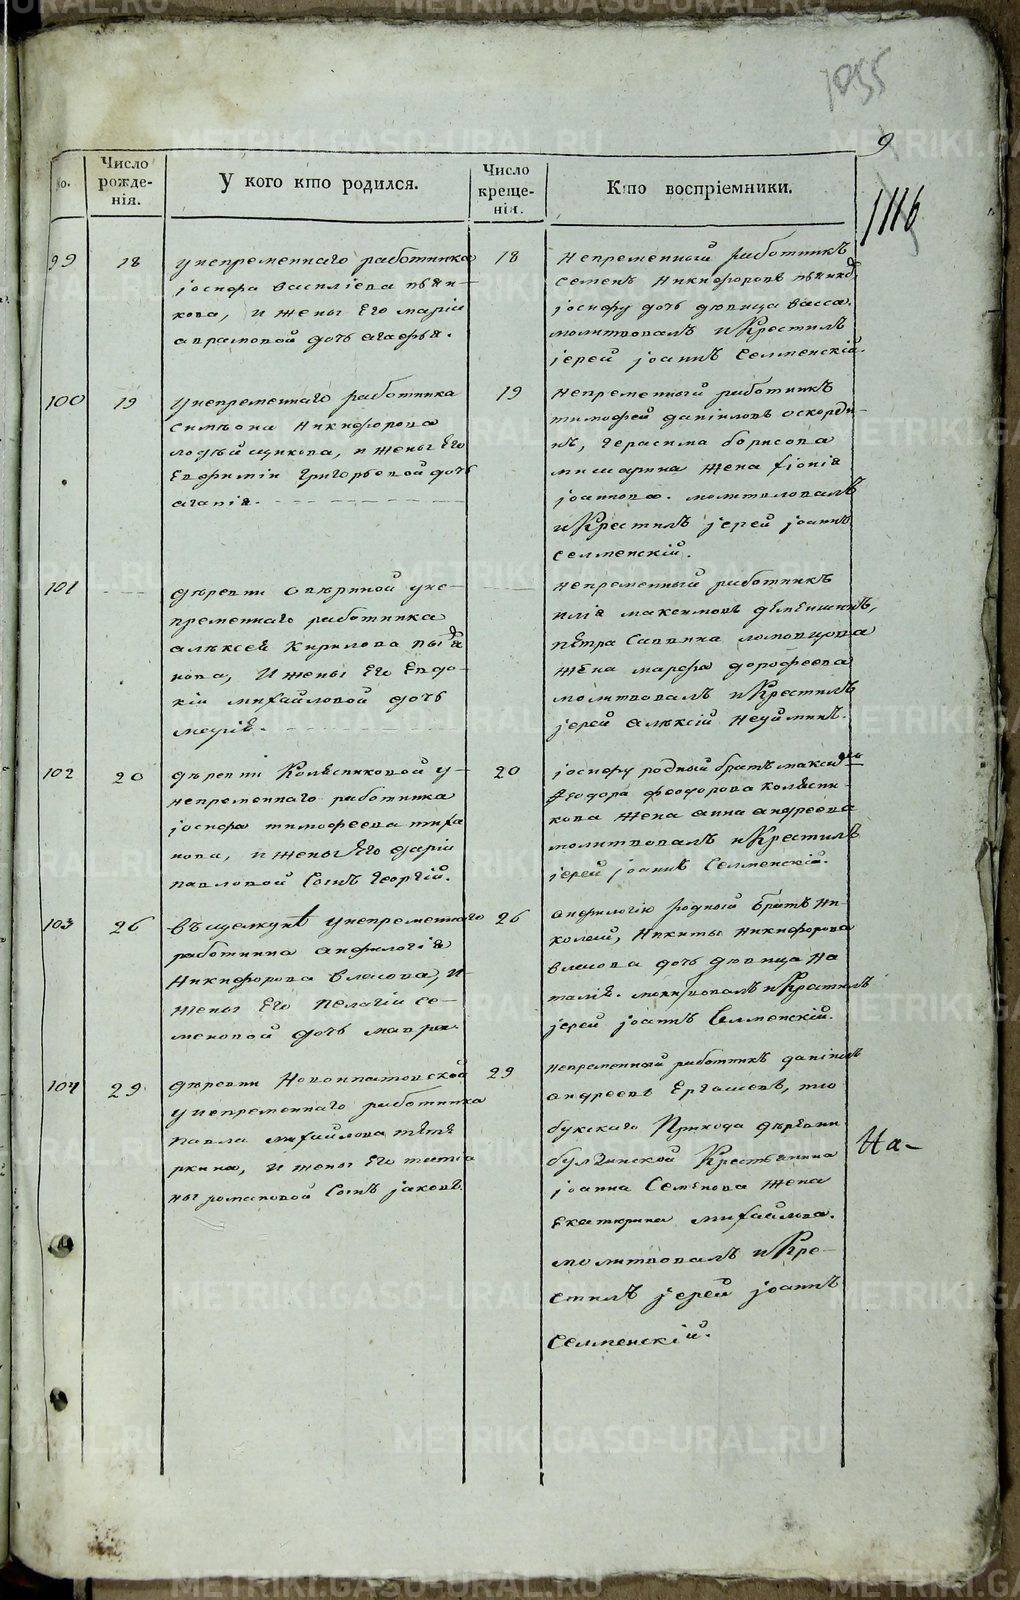 1055
9
1116
No.
Число рожде-нія.
У кого кто родился.
Число креще-нія.
Кто воспріемники.
99
18
у непременнаго работника
іосифа васіліева
кова, и жены Его маріи
аврамовой дочь агафья.
18
непременный работникъ
семенъ никифоровъ
іосифу дочь девица васса.
молитвовалъ и Крестилъ
іерей іоаннъ Селменскій.
100
19
у непременнаго работника
симеона никифорова
и жены Его
Евфиміи григорьевой дочь
агапія.
19
непременный работникъ
тимофей даніиловъ оскорди-
нъ, герасима борисова
мишарина жена
іоаннова. молитвовалъ
и Крестилъ іерей іоаннъ
Селменскій.
101
деревни у не-
пременнаго работника
алексея Кирилова
кова, и жены Его Евдо-
кіи михайловой дочь
непременный работникъ
илія максимовъ
петра Саввина
жена марфа дорофеева
молитвовалъ и Крестилъ
іерей алексій неуйминъ.
102
20
деревни Колясниковой у
непременнаго работника
іосифа тимофеева тиха
нова, и жены Его даріи
павловой Сынъ Георгій.
20
іосифу родный братъ максимъ
феодора феодорова Колясни-
кова жена анна андреева
молитвовалъ и Крестилъ
іерей іоаннъ Селменскій.
103
26
въ щелкунѣ у непременнаго
работника анфилогія
никифорова власова, и
жены Его пелагіи се-
меновой дочь мавра.
26
анфилогію родный братъ ни-
колай, никиты никифорова
власова дочь девица на
талія. молитвовалъ и Крестилъ
іерей іоаннъ Селменскій.
104
29
деревни новоипатовской
у непременнаго работника
павла михайлова тете
ркина, и жены Его татіа
ны романовой Сынъ іаковъ.
29
непременный работникъ даніилъ
андреевъ Ергашевъ, тю
букскаго Прихода деревни
булзинской Крестьянина
іоанна Семенова жена
Екатерина михайлова.
молитвовалъ и Кре-
стилъ іерей іоаннъ
Селменскій.
На-
METRIKI.GASO-URAL.RU